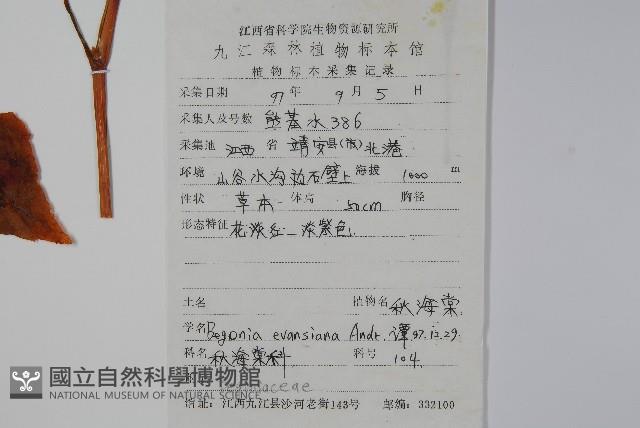 江西省科学院生物资源研究所
九江森林植物标本馆
植物标本采集记录
采集日期 97 年 9 月 5 日
采集人及号数 熊基水 386
采集地 江西 省 靖安县(市)北港
环境 山谷水沟边石壁上 海拔 1000 m
性状 草本 体高 50cm 胸径
形态特征 花淡红—淡紫色
土名 植物名 秋海棠
学名 Begonia evansiana Andr. 谭 97.12.29.
科名 秋海棠科 科号 104.
Begoniaceae
馆址：江西九江县沙河老街143号 邮编：332100
國立自然科學博物館
NATIONAL MUSEUM OF NATURAL SCIENCE